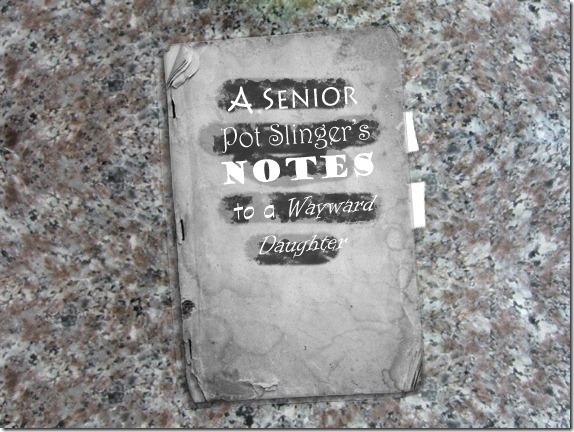 A SENIOR
Pot Slinger's
NOTES
to a Wayward
Daughter